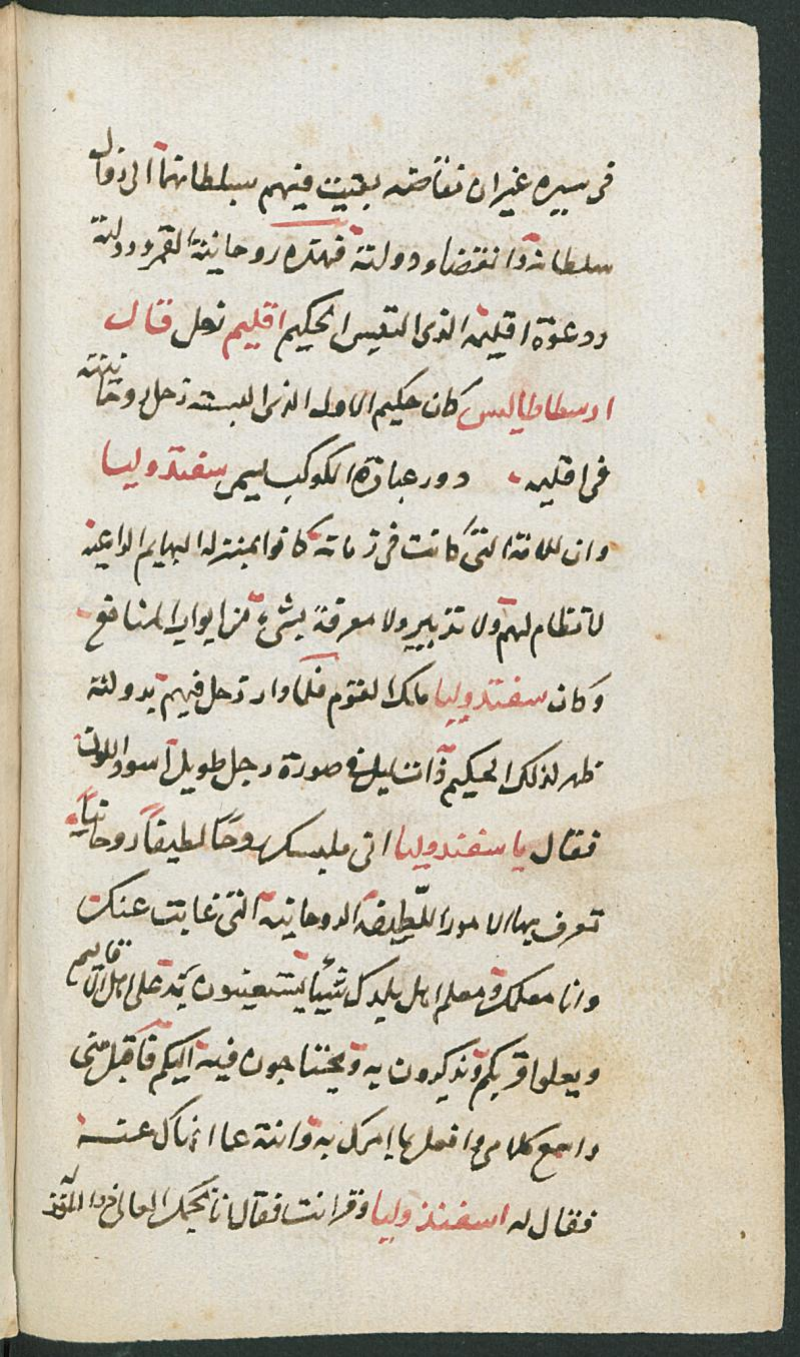 فى سيره غير ان تفاضه بقيت فيهم سلطانها الى زوال
سلطانه وانقضاء دولته فهذه روحانية القمر ودولته
ودعوة اقليمه الذى التقيس الحكيم اقليم زحل قال
ارسطاطاليس كان حكيم الاول الذى البسته زحل روحانيته
فى اقليمه دور عبادة الكوكب ليسمى سفندوليا
وان للامة التى كانت فى زمانه كانوا بمنزلة البهايم الراعيه
لا نتظام لهم ولا تدبير ولا معرفة بشىء من ابواب المنافع
وكان سفندوليا مالك القوم فلما دار زحل فيهم بدولته
ظهر لذلك الحكيم ذات ليله فى صورة رجل طويل اسود اللون
فقال يا سفندوليا انى ملبسك روحًا لطيفًا روحانيًا
تعرف بها الامور اللّطيفه الروحانيه التى غابت عنك
وانا معلمك ومعلم اهل بلدك شيئًا يستعينون به على اهل الاقاليم
ويعلوا قربكم وتذكرون به ويحتاجون فيه اليكم فاقبل منى
واسمع كلامى وافعل ما امرك به وانته عما انهاك عنه
فقال له اسفندوليا وقرانت فقال انا نجمك العالى